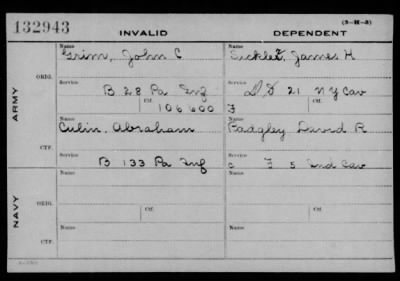 132943 INVALID DEPENDENT (3-H-3)
ARMY
ORIG.
Name Grim, John C Name Sickler, James H
Service B 28 Pa Inf Service D & F 21 NY Cav
Ctf. 106 600 Ctf.
CTF.
Name Culin, Abraham Name Badgley David R
Service B 133 Pa Inf Service c F 5 Ind Cav
NAVY
ORIG.
Name Name
Service Ctf. Service Ctf.
CTF.
Name Name
Service Service